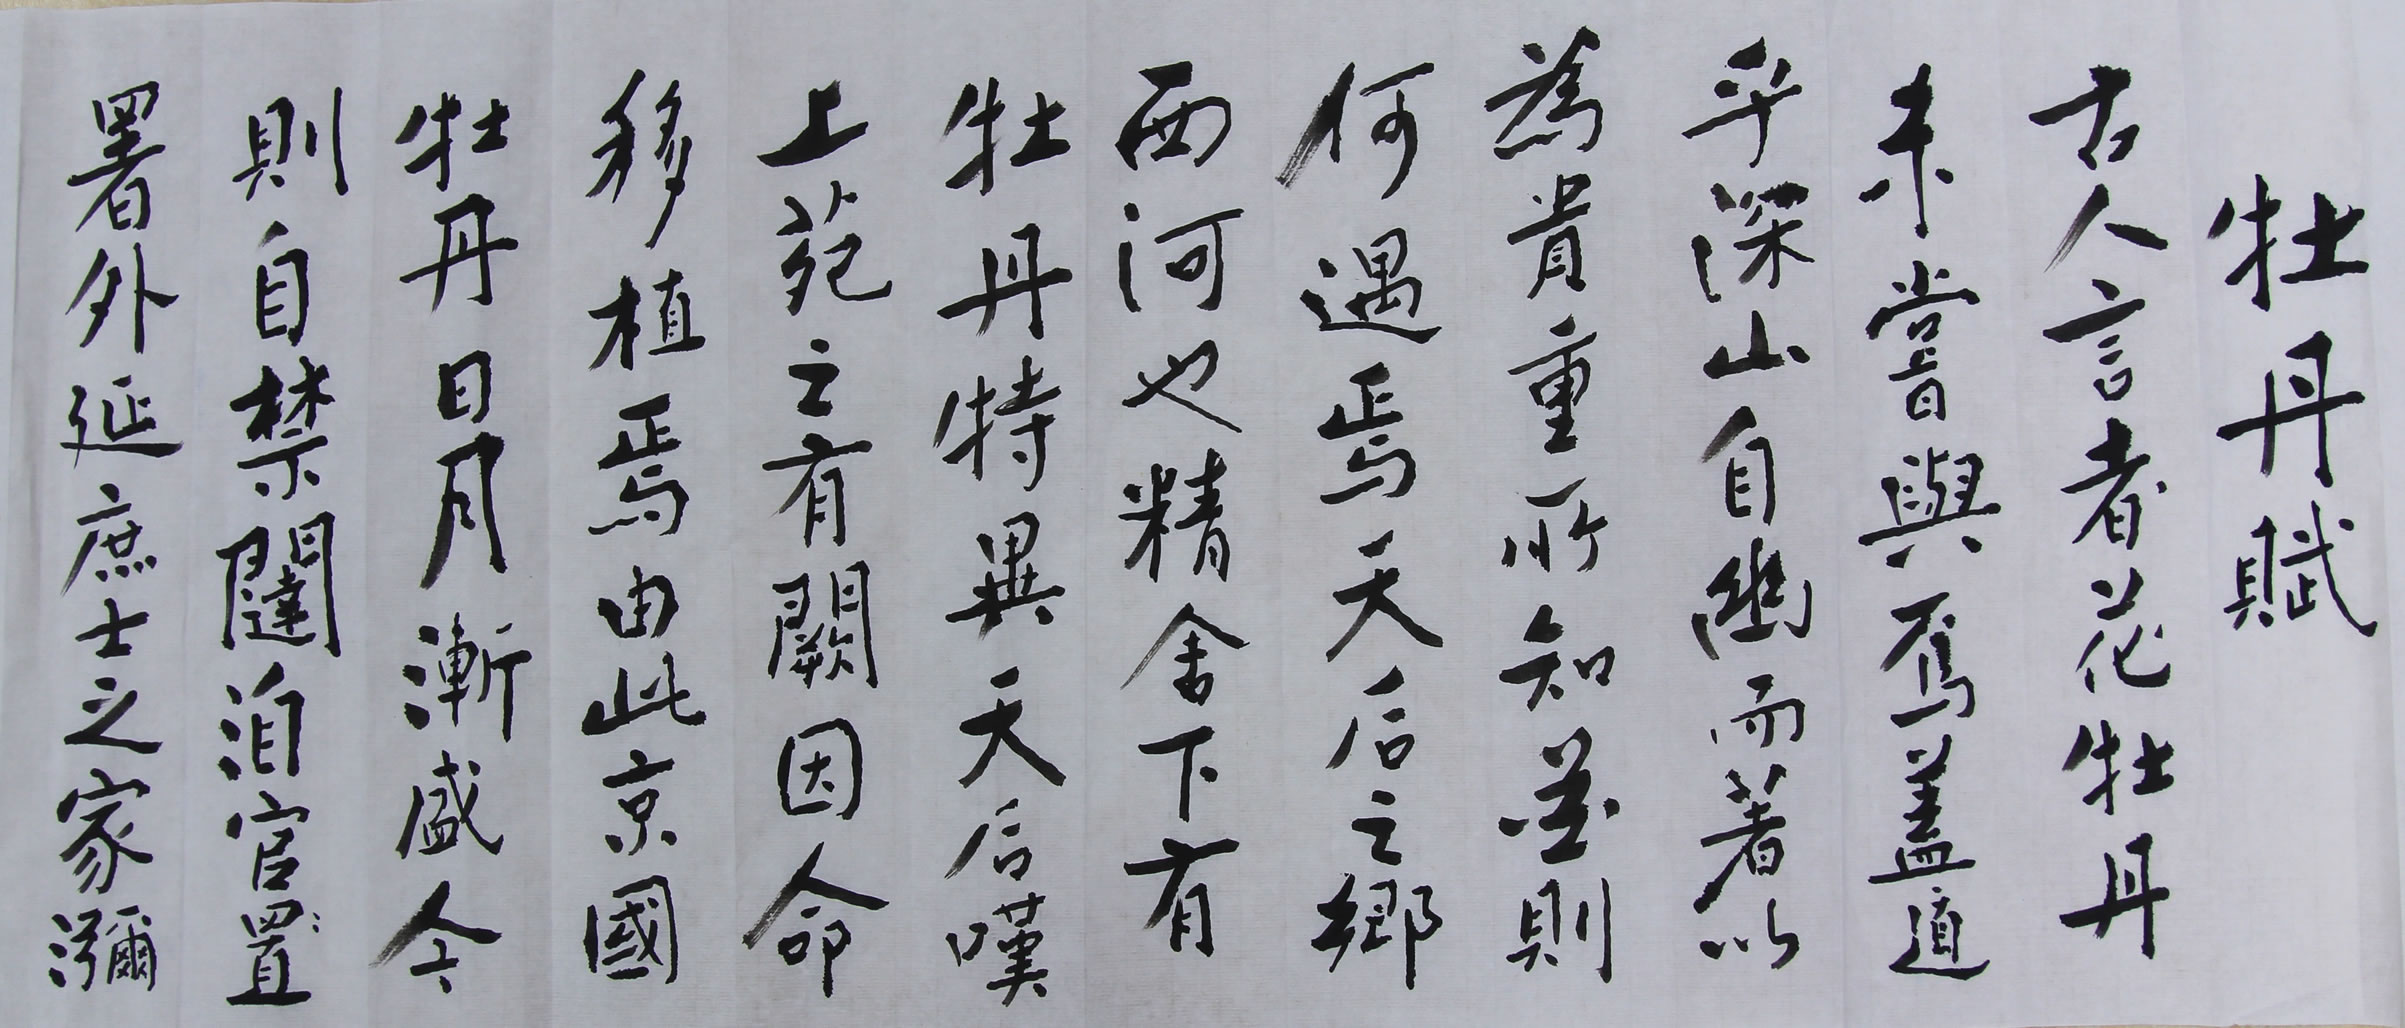 牡丹賦
古人言者花牡丹
未嘗與焉蓋遁
乎深山自幽而著以
為貴重所知並則
何遇焉天后之鄉
西河也精舍下有
牡丹特異天后嘆
上苑之有闕因命
移植焉由此京國
牡丹日月漸盛今
則自禁闥洎官置
署外延庶士之家瀰